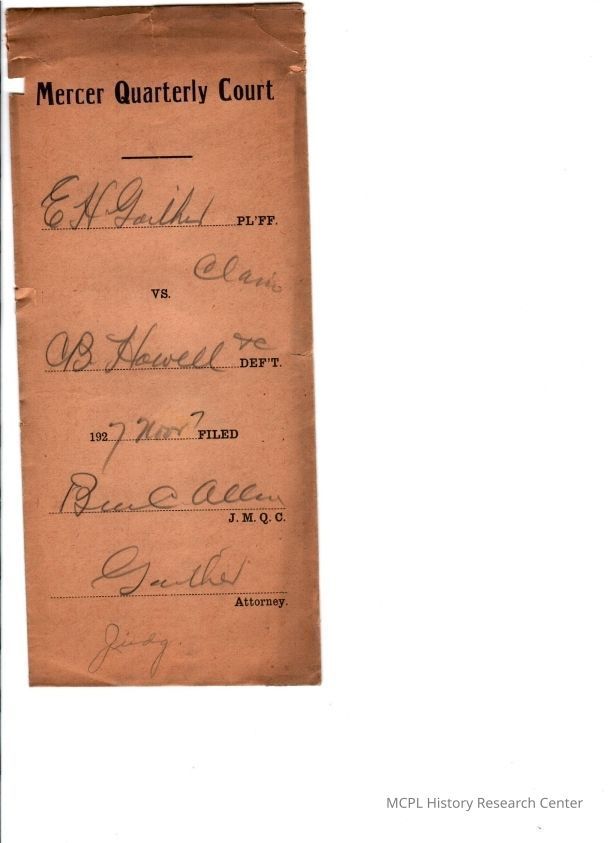 Mercer Quarterly Court
E H Gaither PL'FF.
Claim
VS.
CB. Howell &c DEF'T.
1927 Nov 7 FILED
Ben C Allen
J. M. Q. C.
Gaither
Attorney.
Judg.
MCPL History Research Center